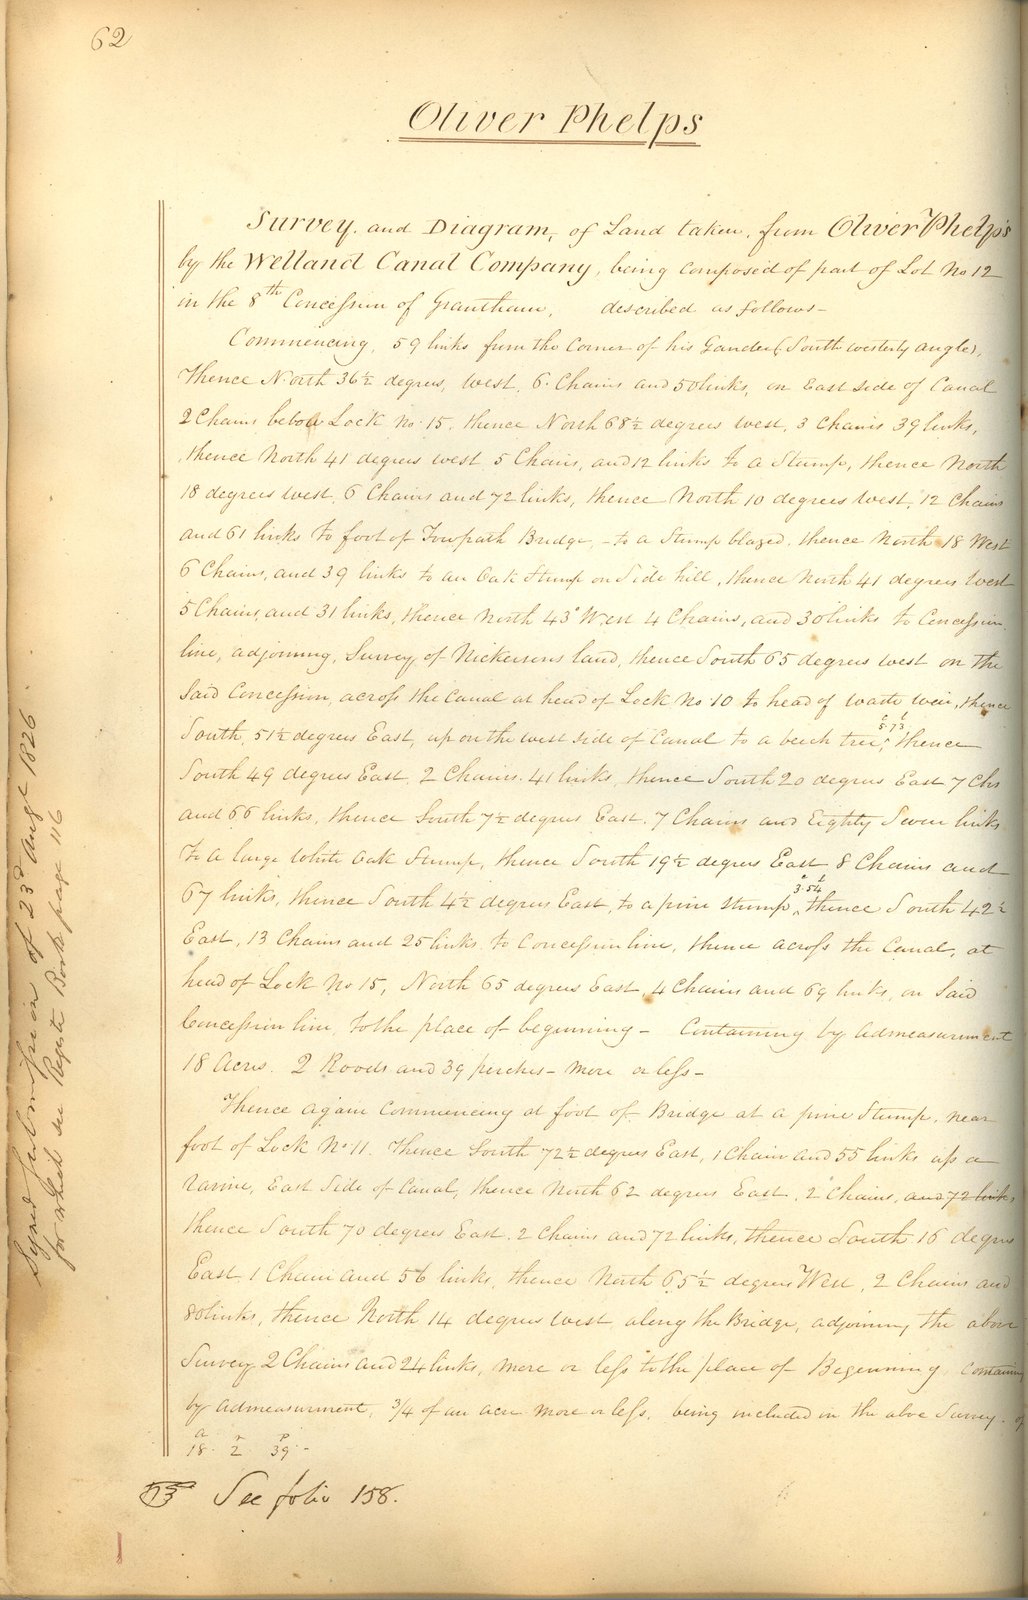 62
Oliver Phelps
Survey and Diagram, of Land taken, from Oliver Phelps's
by the Welland Canal Company, being composed of part of Lot No 12
in the 8th Concession of Grantham, described as follows-
Commencing, 59 links from the Corner of his Garden (South westerly angle),
Thence North 36½ degrees, West, 6 Chains and 50 links, on East side of Canal
2 Chains below Lock No. 15, thence North 68½ degrees west, 3 Chains 39 links,
thence North 41 degrees west 5 Chains, and 12 links to a Stump, thence North
18 degrees west, 6 Chains and 72 links, thence North 10 degrees West, 12 Chains
and 61 links to foot of Towpath Bridge, - to a Stump blazed. thence North 18 West
6 Chains, and 39 links to an Oak Stump on Side hill, thence North 41 degrees West
5 Chains, and 31 links, thence North 43° West 4 Chains, and 30 links to Concession
line, adjoining, Survey of Nickersons land, thence South 65 degrees west on the
Said Concession, across the Canal at head of Lock No. 10 to head of waste weir, thence
South, 51½ degrees East, up on the west side of Canal to a beech tree, c 5. l 73, thence
South 49 degrees East, 2 Chains. 41 links, thence South 20 degrees East 7 Chs
and 66 links, thence South 7½ degrees East. 7 Chains and Eighty Seven links
to a large White Oak Stump, thence South 19½ degrees East 8 Chains and
67 links, thence South 4½ degrees East, to a pine Stump, c 3. l 54 thence South 42½
East, 13 Chains and 25 links to Concession line, thence across the Canal, at
head of Lock No 15, North 65 degrees East, 4 Chains and 69 links, on Said
Concession line, to the place of beginning - Containing by admeasurement
18 Acres. 2 Roods and 39 perches - more or less -
Thence again Commencing at foot of Bridge at a pine Stump, near
foot of Lock No. 11. Thence South 72½ degrees East, 1 Chain and 55 links up a
ravine, East Side of Canal, thence North 62 degrees East, 2 Chains, and 72 links,
thence South 70 degrees East. 2 Chains and 72 links, thence South 16 degrees
East, 1 Chain and 56 links, thence North 65½ degrees West, 2 Chains and
80 links, thence North 14 degrees west along the Bridge, adjoining the above
Survey 2 Chains and 24 links, more or less to the place of Beginning, containing
by admeasurement, 3/4 of an acre more or less, being included in the above Survey. of
a 18. r 2 p 39 -
See folio 158.
Signed Submission of 23d Augt 1826
for which see Registr Book page 116